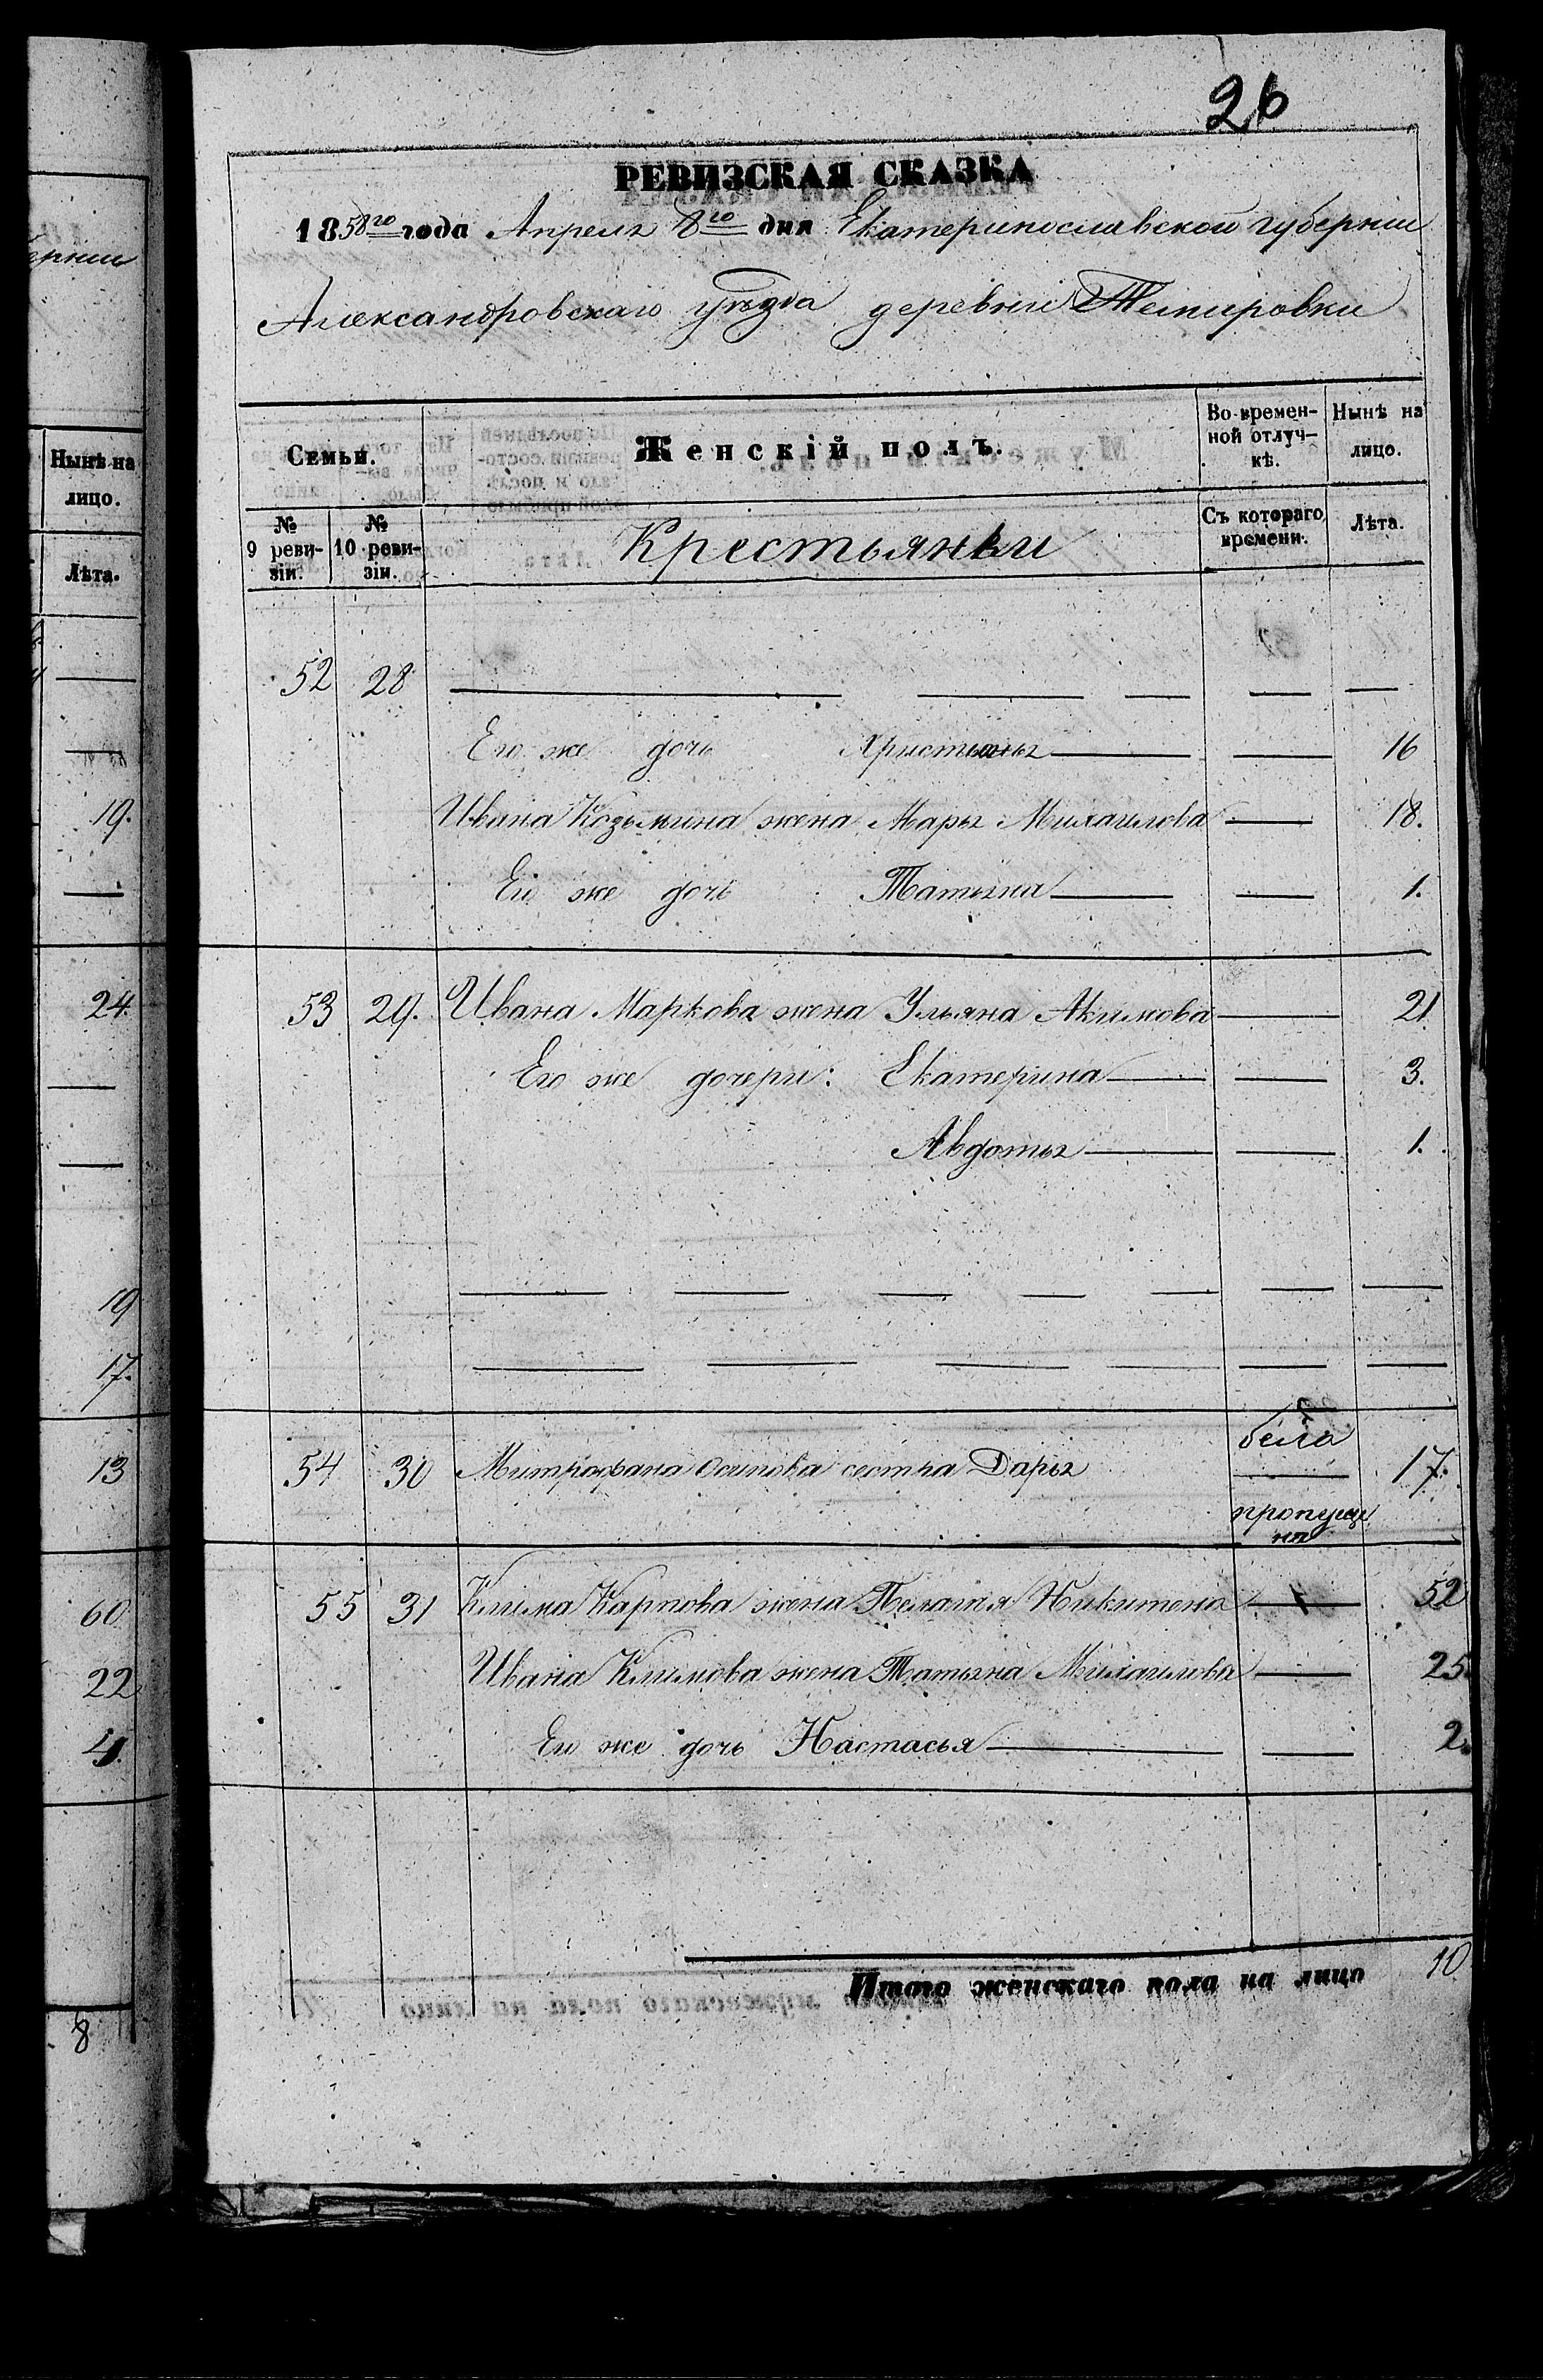 26
РЕВИЗСКАЯ СКАЗКА
1858го года Апреля 8го дня Екатеринославской губернiи
Александровскаго уѣзда деревни Темировки
Семьи.
Женскiй полъ.
Во времен-
ной отлуч-
кѣ.
Нынѣ на
лицо.
№
9 реви-
зiи.
№
10 реви-
зiи.
Крестьянки
Съ котораго
времени.
Лѣта.
52 28
Его же дочь Христьяна 16
Ивана Козьмина жена Марья Михаилова 18.
Его же дочь Татьяна 1.
53 29. Ивана Маркова жена Ульяна Акимова 21
Его же дочери: Екатерина 3.
Авдотья 1.
54 30 Митрофана Осипова сестра Дарья 17.
бела
пропуще
на
55 31 Клима Карпова жена Пелагия Никитена 52
Ивана Климова жена Татьяна Михаилова 25.
Его же дочь Настасья 2.
Итого женскаго пола на лицо 10
ернiи
Нынѣ на
лицо.
Лѣта.
19.
24.
19
17.
13
60
22
4.
8